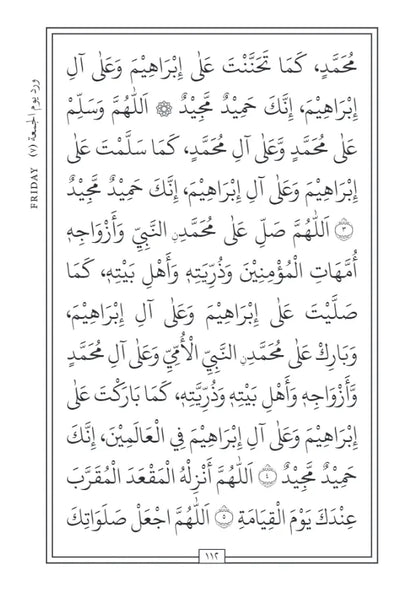 ورد يوم الجمعة (٧) FRIDAY
مُحَمَّدٍ، كَمَا تَحَنَّنْتَ عَلٰى إِبْرَاهِيْمَ وَعَلٰى آلِ
إِبْرَاهِيْمَ، إِنَّكَ حَمِيْدٌ مَّجِيْدٌ ۞ اَللّٰهُمَّ وَسَلِّمْ
عَلٰى مُحَمَّدٍ وَّعَلٰى آلِ مُحَمَّدٍ، كَمَا سَلَّمْتَ عَلٰى
إِبْرَاهِيْمَ وَعَلٰى آلِ إِبْرَاهِيْمَ، إِنَّكَ حَمِيْدٌ مَّجِيْدٌ
۝٣ اَللّٰهُمَّ صَلِّ عَلٰى مُحَمَّدِنِ النَّبِيِّ وَأَزْوَاجِهٖ
أُمَّهَاتِ الْمُؤْمِنِيْنَ وَذُرِّيَّتِهٖ وَأَهْلِ بَيْتِهٖ، كَمَا
صَلَّيْتَ عَلٰى إِبْرَاهِيْمَ وَعَلٰى آلِ إِبْرَاهِيْمَ،
وَبَارِكْ عَلٰى مُحَمَّدِنِ النَّبِيِّ الْأُمِّيِّ وَعَلٰى آلِ مُحَمَّدٍ
وَّأَزْوَاجِهٖ وَأَهْلِ بَيْتِهٖ وَذُرِّيَّتِهٖ، كَمَا بَارَكْتَ عَلٰى
إِبْرَاهِيْمَ وَعَلٰى آلِ إِبْرَاهِيْمَ فِي الْعَالَمِيْنَ، إِنَّكَ
حَمِيْدٌ مَّجِيْدٌ ۝٤ اَللّٰهُمَّ أَنْزِلْهُ الْمَقْعَدَ الْمُقَرَّبَ
عِنْدَكَ يَوْمَ الْقِيَامَةِ ۝٥ اَللّٰهُمَّ اجْعَلْ صَلَوَاتِكَ
١١٢